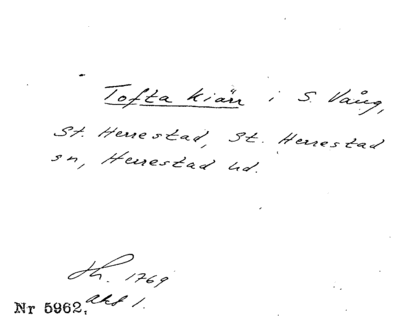 Tofta kiärr i S. Vång,
St. Herrestad, St. Herrestad
sn, Herrestad hd.
Sk. 1769
Nr 5962, akt 1.